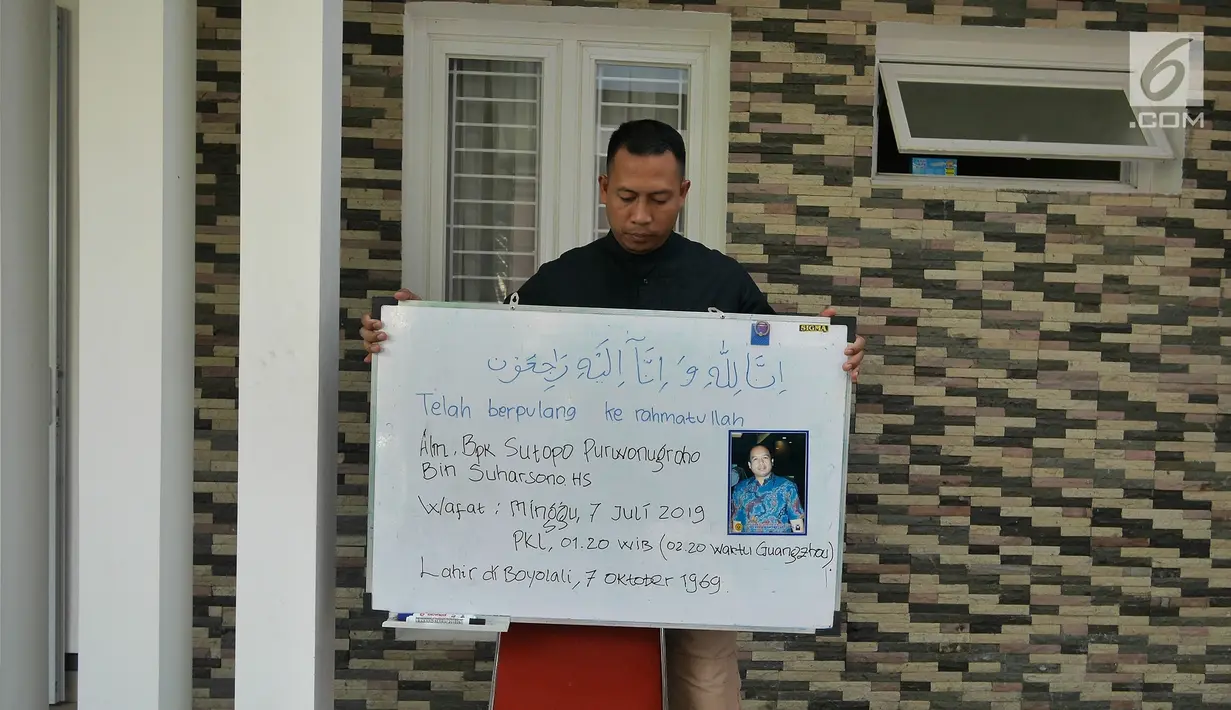 6
.COM
SIGMA
اِنَّا لِلّٰهِ وَ اِنَّآ اِلَيْهِ رَاجِعُوْن
Telah berpulang ke rahmatullah
Alm. Bpk Sutopo Purwonugroho
Bin Suharsono HS
Wafat : Minggu, 7 Juli 2019
PKL, 01.20 WIB (02.20 waktu Guangzhou)
Lahir di Boyolali, 7 Oktober 1969.